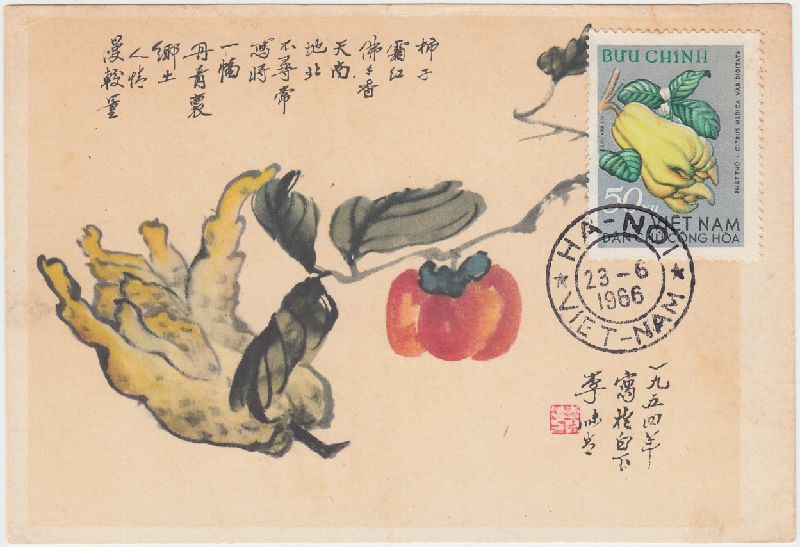 柿子
霜紅
佛手香
天南
地北
不尋常
寫將
一幅
丹青裏
鄉土
人情
漫較量
BƯU CHÍNH
PHẬT THỦ - CITRUS MEDICA VAR DIGITATA
50 xu
VIỆT NAM
DÂN CHỦ CỘNG HÒA
HA-NOI
23-6
1966
VIET-NAM
一九五四年
寫於白下
李味青